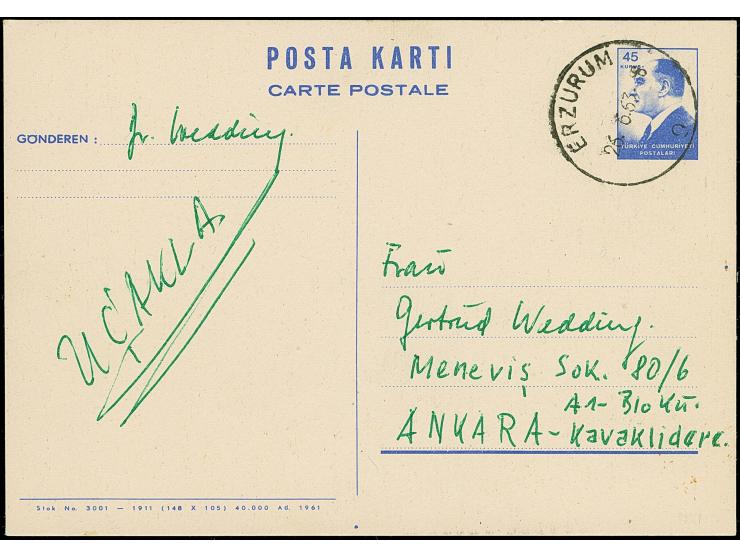 POSTA KARTI
CARTE POSTALE
45
KURUŞ
TÜRKİYE CUMHURİYETİ
POSTALARI
ERZURUM
GÖNDEREN : Fr. Wedding.
UÇAKLA
Frau
Gertrud Wedding.
Meneviş Sok. 80/6
A1-Bloku.
ANKARA-Kavaklidere.
Stok No. 3001 — 1911 (148 X 105) 40.000 Ad. 1961